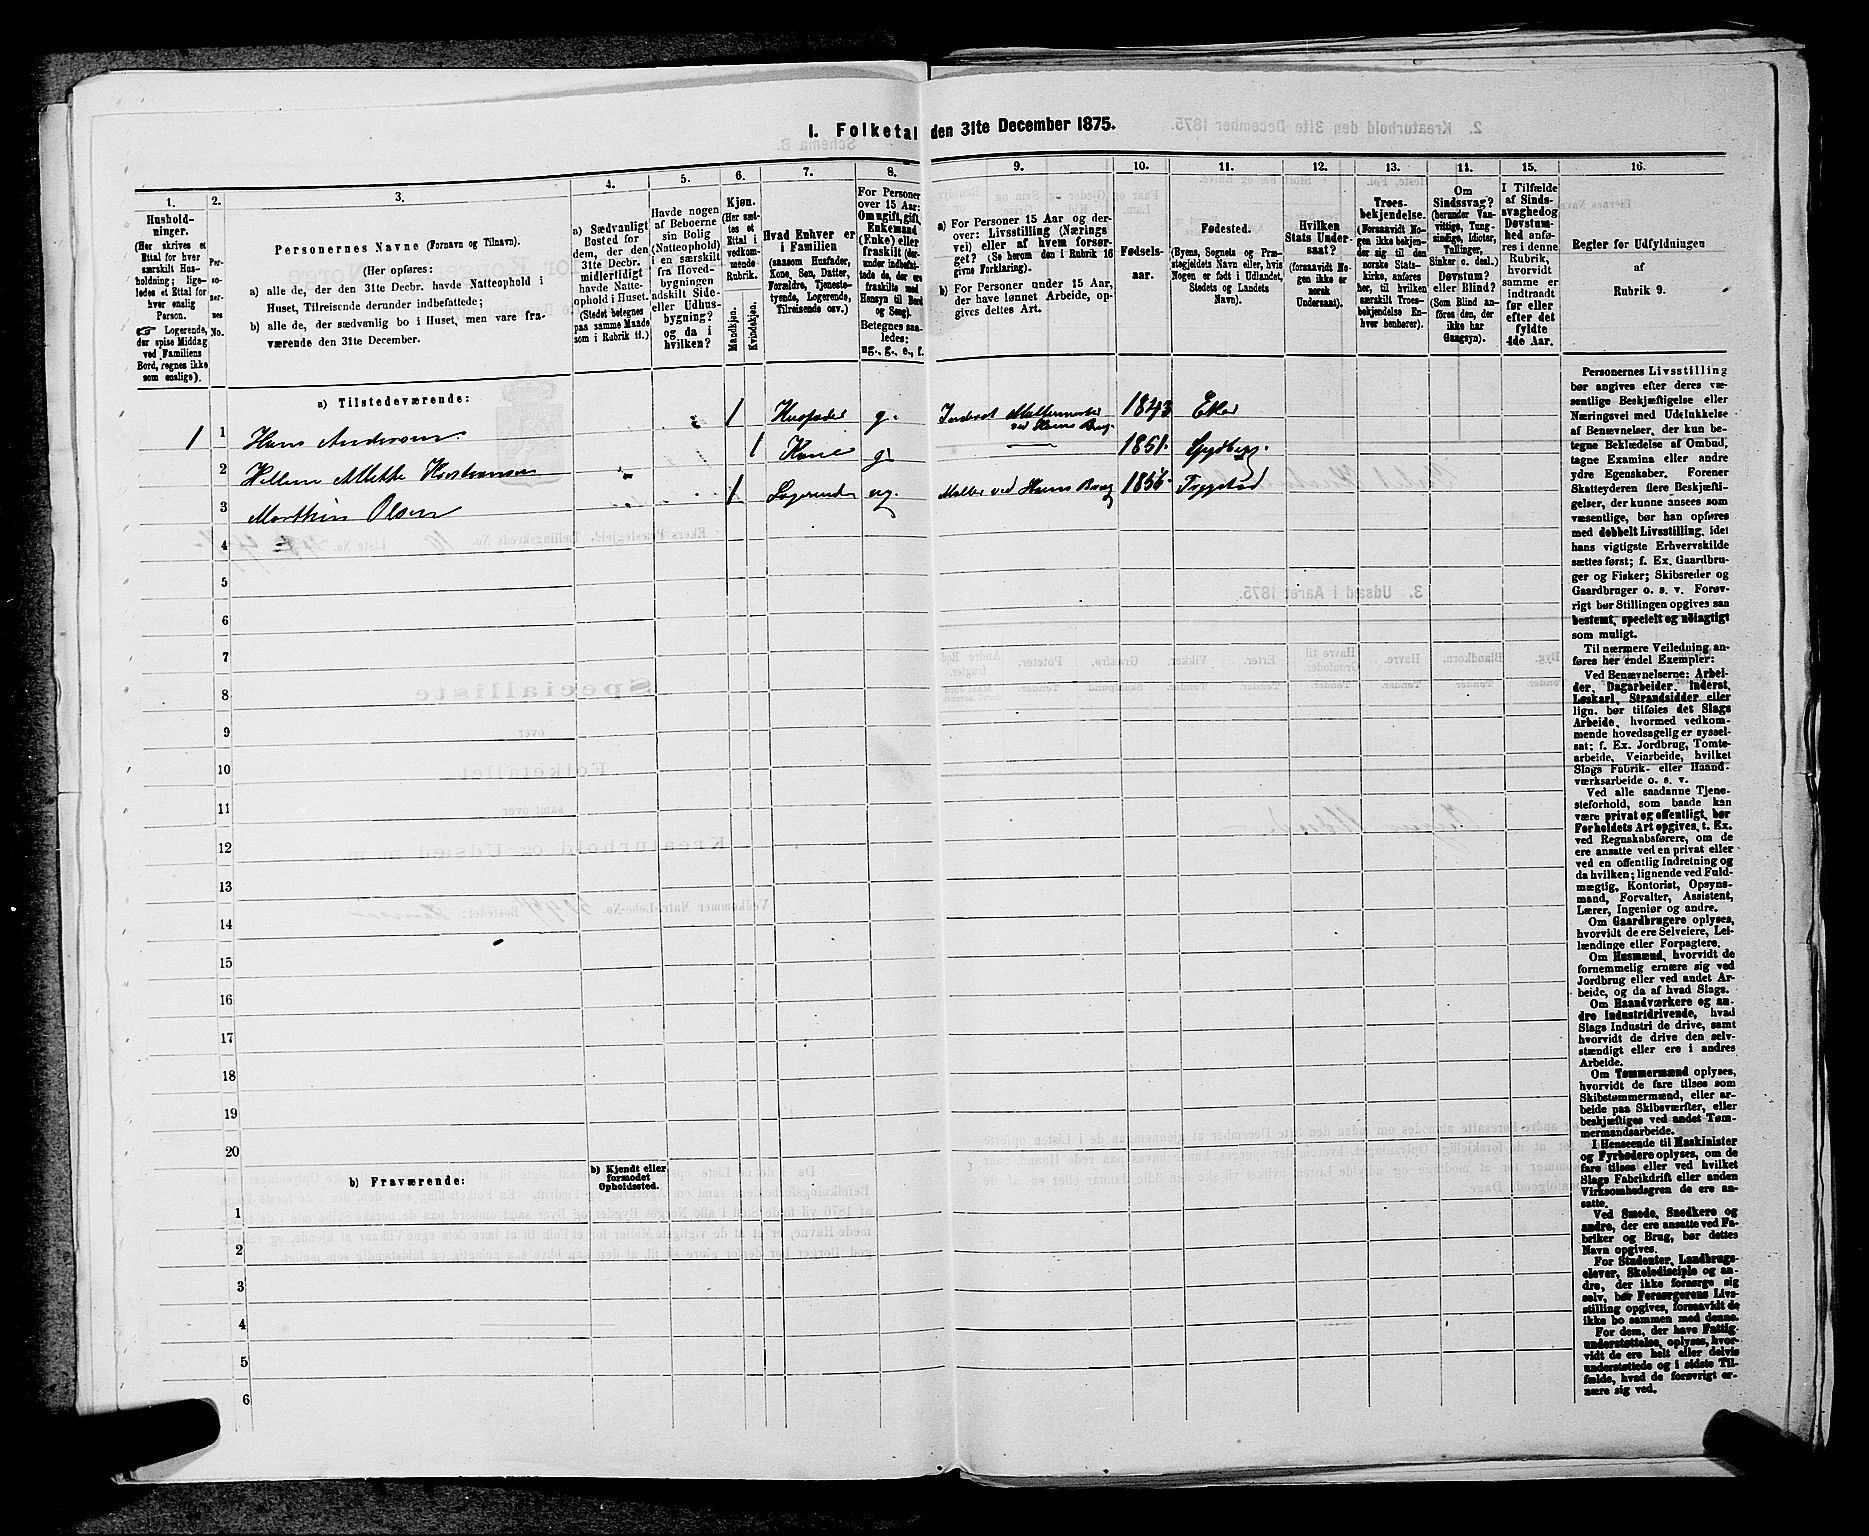 1. Folketal den 31te December 1875.
1.
Hushold-
ninger.
(Her skrives et
Ettal for hver
særskilt Hus-
holdning; lige-
ledes et Ettal for
hver enslig
Person.
☞ Logerende,
der spise Middag
ved Familiens
Bord, regnes ikke
som enslige).
2.
Per-
so-
ner-
nes
No.
3.
Personernes Navne (Fornavn og Tilnavn).
(Her opføres:
a) alle de, der den 31te Decbr. havde Natteophold i
Huset, Tilreisende derunder indbefattede;
b) alle de, der sædvanlig bo i Huset, men vare fra-
værende den 31te December.
4.
a) Sædvanligt
Bosted for
dem, der den
31te Decbr.
midlertidigt
havde Natte-
ophold i Huset.
(Stedet betegnes
paa samme Maade
som i Rubrik 11.)
5.
Havde nogen
af Beboerne
sin Bolig
(Natteophold)
i en særskilt
fra Hoved-
bygningen
adskilt Side-
eller Udhus-
bygning?
og da i
hvilken?
6.
Kjøn.
(Her sæt-
tes et
Ettal i
vedkom-
mende
Rubrik.
Mandkjøn.
Kvindekjøn.
7.
Hvad Enhver er
i Familien
(saasom Husfader,
Kone, Søn, Datter,
Forældre, Tjeneste-
tyende, Logerende,
Tilreisende osv.)
8.
For Personer
over 15 Aar:
Om ugift, gift,
Enkemand
(Enke) eller
fraskilt (der-
under indbefat-
tede de, der ere
fraskilte med
Hensyn til Bord
og Seng).
Betegnes saa-
ledes:
ug., g., e., f.
9.
a) For Personer 15 Aar og der-
over: Livsstilling (Nærings
vei) eller af hvem forsør-
get? (Se herom den i Rubrik 16
givne Forklaring).
b) For Personer under 15 Aar,
der have lønnet Arbeide, op-
gives dettes Art.
10.
Fødsels-
aar.
11.
Fødested.
(Byens, Sognets og Præ-
stegjeldets Navn eller, hvis
Nogen er født i Udlandet,
Stedets og Landets
Navn).
12.
Hvilken
Stats Under-
saat?
(forsaavidt No-
gen ikke er
norsk
Undersaat).
13.
Troes-
bekjendelse.
(Forsaavidt No-
gen ikke bekjen-
der sig til den
norske Stats-
kirke, anføres
her, til hvilken
særskilt Troes-
bekjendelse En-
hver henhører).
14.
Om
Sindssvag?
(herunder Van-
vittige, Tung-
sindige, Idioter,
Tullinger,
Sinker o. desl.)
Døvstum?
eller Blind?
(Som Blind an-
føres den, der
ikke har
Gangsyn).
15.
I Tilfælde
af Sinds-
svaghed og
Døvstum-
hed anfø-
res i denne
Rubrik,
hvorvidt
samme er
indtraadt
før eller
efter det
fyldte
4de Aar.
16.
Regler for Udfyldningen
af
Rubrik 9.
a) Tilstedeværende:
1 1 Hans Andersen 1 Husfader g. Inderst Møllearbeider ved Hams Brug 1843 Eker
2 1 Kone g. 1851. Lydberg.
3 Marthin Olsen 1 Logerende ug. Møller ved Hams Brug 1856. Trygstad
4
5
6
7
8
9
10
11
12
13
14
15
16
17
18
19
20
b) Fraværende:
b) Kjendt eller
formodet
Opholdssted.
1
2
3
4
5
6
Personernes Livsstilling
bør angives efter deres væ-
sentlige Beskjæftigelse eller
Næringsvei med Udelukkelse
af Benævnelser, der kun be-
tegne Beklædelse af Ombud,
tagne Examina eller andre
ydre Egenskaber. Forener
Skatteyderen flere Beskjæfti-
gelser, der kunne ansees som
væsentlige, bør han opføres
med dobbelt Livsstilling, idet
hans vigtigste Erhvervskilde
sættes først; f. Ex. Gaardbru-
ger og Fisker; Skibsreder og
Gaardbruger o. s. v. Forøv-
rigt bør Stillingen opgives saa
bestemt, specielt og nøiagtigt
som muligt.
Til nærmere Veiledning an-
føres her endel Exempler:
Ved Benævnelserne: Arbei-
der, Dagarbeider, Inderst,
Løskarl, Strandsidder eller
lign. bør tilføies det Slags
Arbeide, hvormed vedkom-
mende hovedsagelig er syssel-
sat; f. Ex. Jordbrug, Tomte-
arbeide, Veiarbeide, hvilket
Slags Fabrik- eller Haand-
værksarbeide o. s. v.
Ved alle saadanne Tjene-
steforhold, som baade kan
være privat og offentligt, bør
Forholdets Art opgives, t. Ex.
ved Regnskabsførere, om de
ere ansatte ved en privat eller
ved en offentlig Indretning og
da hvilken; lignende ved Fuld-
mægtig, Kontorist, Opsyns-
mand, Forvalter, Assistent,
Lærer, Ingeniør og andre.
Om Gaardbrugere oplyses,
hvorvidt de ere Selveiere, Lei-
lændinge eller Forpagtere.
Om Husmænd, hvorvidt de
fornemmelig ernære sig ved
Jordbrug eller ved andet Ar-
beide, og da af hvad Slags.
Om Haandværkere og an-
dre Industridrivende, hvad
Slags Industri de drive, samt
hvorvidt de drive den selv-
stændigt eller ere i andres
Arbeide.
Om Tømmermænd oplyses,
hvorvidt de fare tilsøs som
Skibstømmermænd, eller ar-
beide paa Skibsværfter, eller
beskjæftiges ved andet Tøm-
mermandsarbeide.
I Henseende til Maskinister
og Fyrbødere oplyses, om de
fare tilsøs eller ved hvilket
Slags Fabrikdrift eller anden
Virksomhedsgren de ere an-
satte.
Ved Smede, Snedkere og
andre, der ere ansatte ved Fa-
briker og Brug, bør dettes
Navn opgives.
For Studenter, Landbrugs-
elever, Skoledisciple og an-
dre, der ikke forsørge sig
selv, bør Forsørgerens Livs-
stilling opgives, forsaavidt de
ikke bo sammen med denne.
For dem, der have Fattig-
understøttelse, oplyses, hvor-
vidt de ere helt eller delvis
understøttede og i sidste Til-
fælde, hvad de forøvrigt er-
nære sig ved.